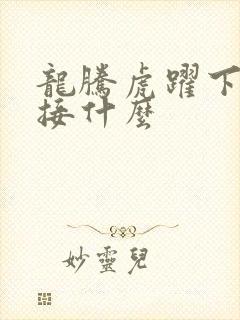 龍騰虎躍下
接什麼
妙靈兒